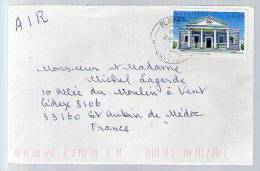 AIR
Monsieur et Madame
Michel Lagarde
10 Allée du Moulin à Vent
Cidex 8106
33160 St Aubin de Médoc
France